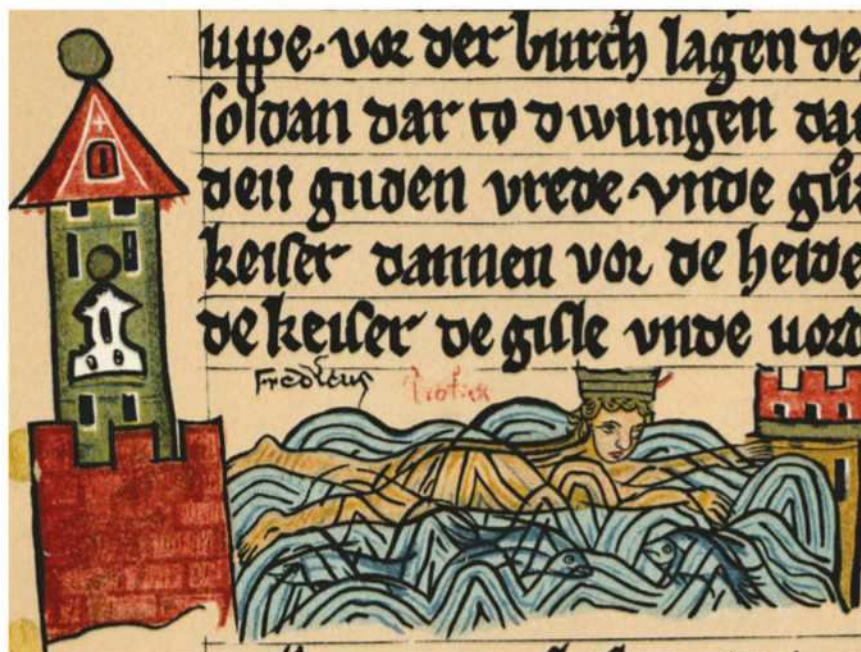 uppe. vor der burch lagen de
soldan dar to dwungen da
den guden vrede. vnde gů
keiser dannen vor de heide
de keiser de gisle vnde uord
Fredicus